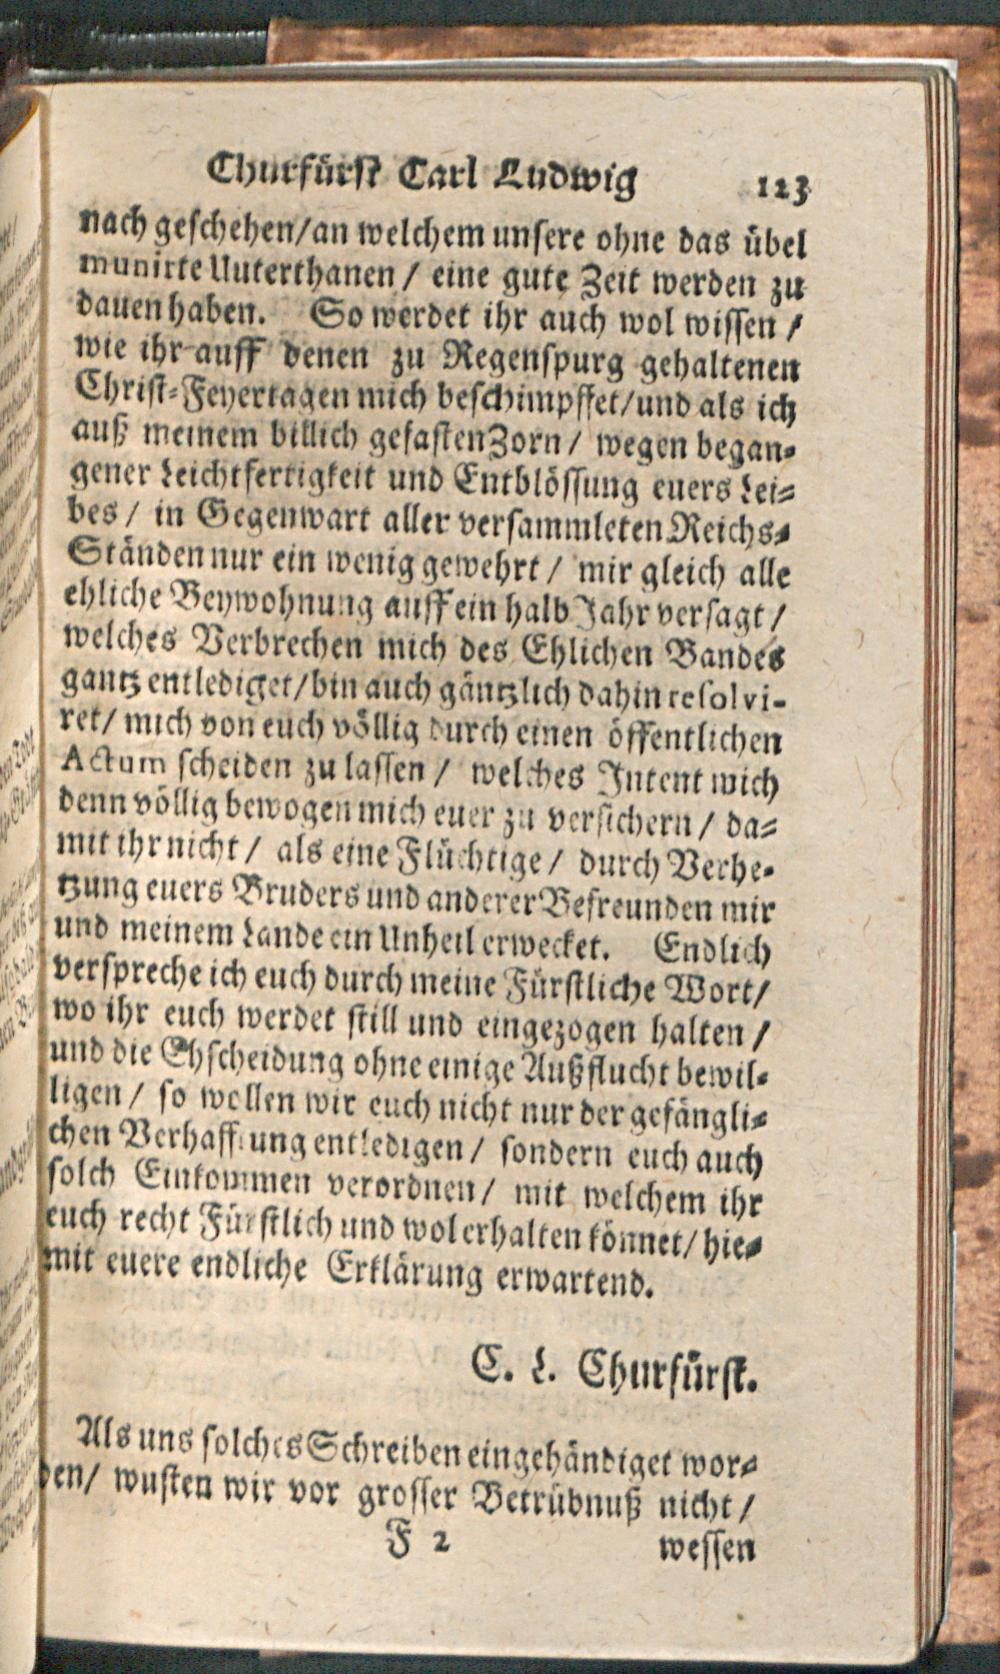 Churfürst Carl Ludwig 123
nach geschehen/an welchem unsere ohne das übel
munirte Unterthanen / eine gute Zeit werden zu
dauen haben. So werdet ihr auch wol wissen /
wie ihr auff denen zu Regenspurg gehaltenen
Christ-Feyertagen mich beschimpffet/und als ich
auß meinem billich gefasten Zorn / wegen began-
gener Leichtfertigkeit und Entblössung euers Lei-
bes / in Gegenwart aller versammleten Reichs-
Ständen nur ein wenig gewehrt / mir gleich alle
ehliche Beywohnung auff ein halb Jahr versagt /
welches Verbrechen mich des Ehlichen Bandes
gantz entlediget/bin auch gäntzlich dahin resolvi-
ret/ mich von euch völlig durch einen öffentlichen
Actum scheiden zu lassen / welches Intent mich
denn völlig bewogen mich euer zu versichern / da-
mit ihr nicht / als eine Flüchtige / durch Verhe-
tzung euers Bruders und anderer Befreunden mir
und meinem Lande ein Unheil erwecket. Endlich
verspreche ich euch durch meine Fürstliche Wort/
wo ihr euch werdet still und eingezogen halten /
und die Ehscheidung ohne einige Außflucht bewil-
ligen / so wollen wir euch nicht nur der gefängli-
chen Verhafftung entledigen / sondern euch auch
solch Einkommen verordnen / mit welchem ihr
euch recht Fürstlich und wol erhalten könnet/ hie-
mit euere endliche Erklärung erwartend.
C. L. Churfürst.
Als uns solches Schreiben eingehändiget wor-
den/ wusten wir vor grosser Betrübnuß nicht /
F 2 wessen